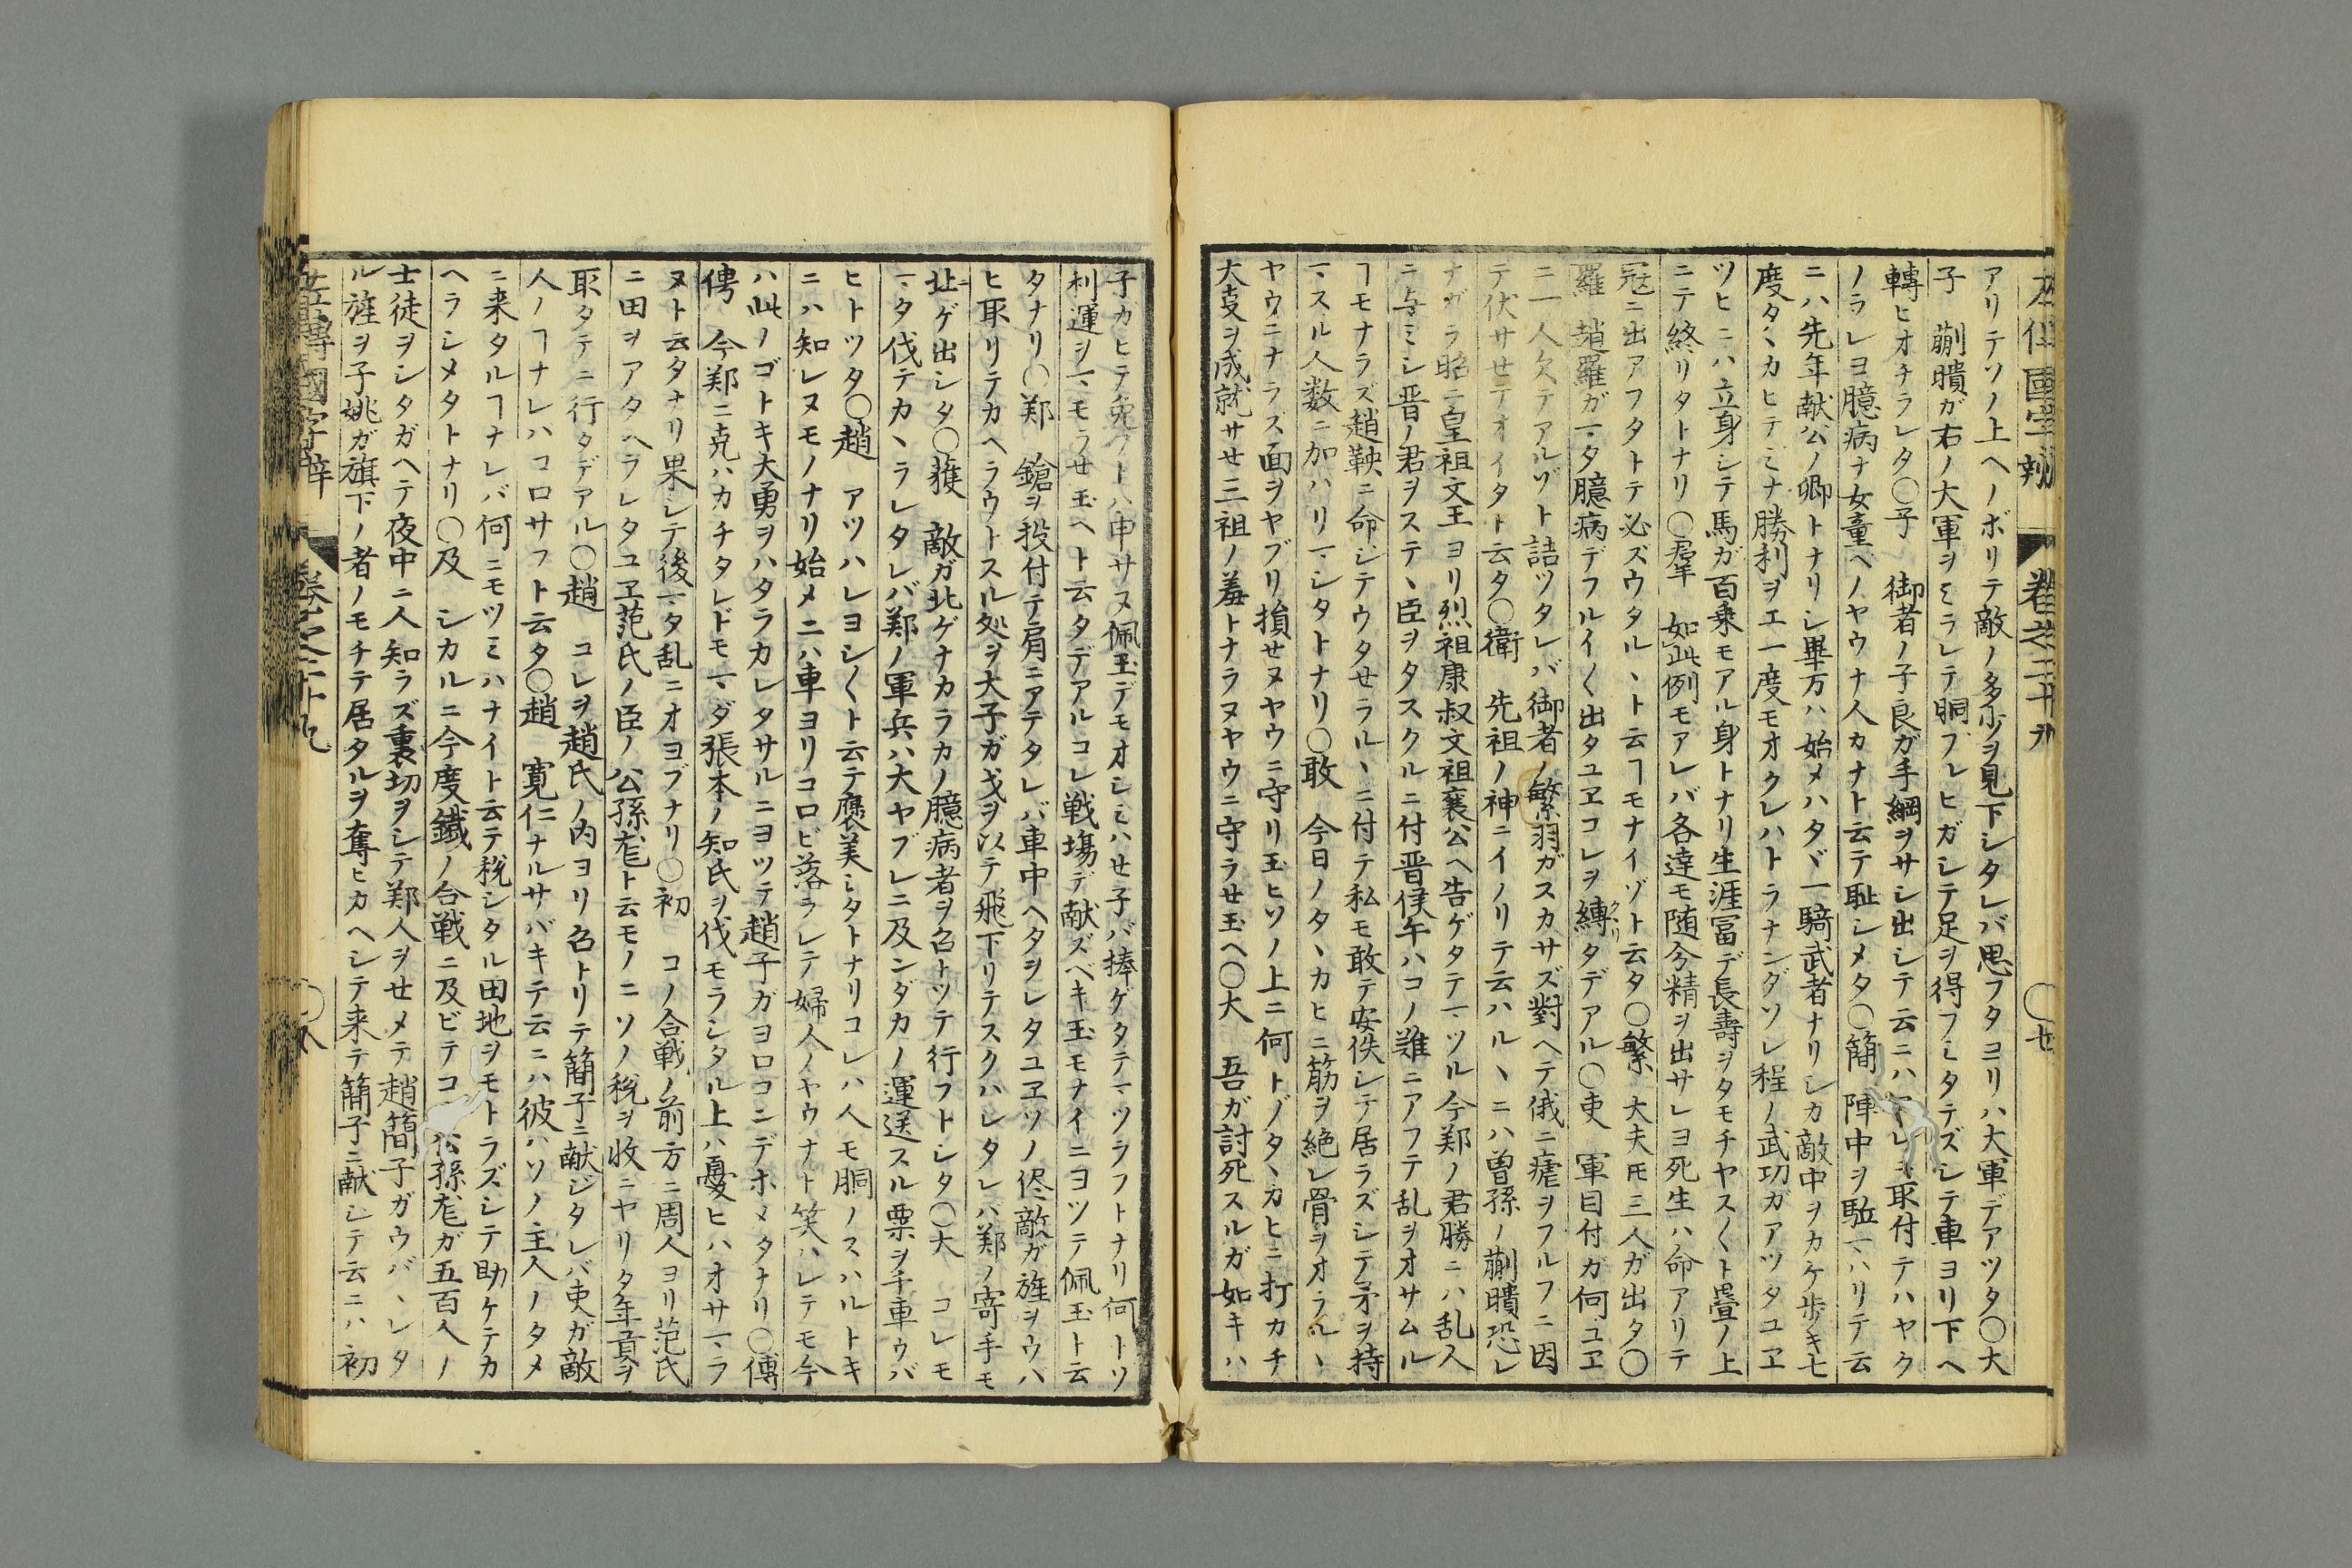 左傳國字辯 卷之二十九 〇廿
アリテソノ上ヘノボリテ敵ノ多少ヲ見下シタレバ思フタヨリハ大軍デアツタ〇大
子 蒯聵ガ右ノ大軍ヲミラレテ胴フレヒガシテ足ヲ得フミタテズシテ車ヨリ下ヘ
轉ヒオチラレタ〇子 御者ノ子良ガ手綱ヲサシ出シテ云ニハ レヨ取付テハヤク
ノラレヨ臆病ナ女童ベノヤウナ人カナト云テ耻シメタ〇簡 陣中ヲ駈マハリテ云
ニハ先年献公ノ卿トナリシ畢万ハ始メハタヾ一騎武者ナリシカ敵中ヲカケ歩キ七
度タヽカヒテミナ勝利ヲエ一度モオクレハトラナンダソレ程ノ武功ガアツタユヱ
ツヒニハ立身シテ馬ガ百乗モアル身トナリ生涯冨デ長壽ヲタモチヤス〱ト疊ノ上
ニテ終リタトナリ〇羣 如此例モアレバ各達モ随分精ヲ出サレヨ死生ハ命アリテ
冦ニ出アフタトテ必ズウタルヽト云ヿモナイゾト云タ〇繁 大夫㐧三人ガ出タ〇
羅 趙羅ガマタ臆病デフルイ〱出タユヱコレヲ縛タデアル〇吏 軍目付ガ何ユヱ
ニ一人欠テアルゾト詰ツタレバ御者ノ繁羽ガスカサズ對ヘテ俄ニ瘧ヲフルフニ因
テ伏サセテオイタト云タ〇衛 先祖ノ神ニイノリテ云ハルヽニハ曽孫ノ蒯聵恐レ
ナガラ昭ニ皇祖文王ヨリ烈祖康叔文祖襄公ヘ告ゲタテマツル今郑ノ君勝ニハ乱人
ニ与ミシ晋ノ君ヲステヽ臣ヲタスクルニ付晋侯午ハコノ難ニアフテ乱ヲオサムル
ヿモナラズ趙鞅ニ命ジテウタセラルヽニ付テ私モ敢テ安佚シテ居ラズシテ矛ヲ持
マスル人数ニ加ハリマシタトナリ〇敢 今日ノタヽカヒニ筋ヲ絶レ骨ヲオラルヽ
ヤウニナラス面ヲヤブリ損セヌヤウニ守リ玉ヒソノ上ニ何トゾタヽカヒニ打カチ
大㕝ヲ成就サせ三祖ノ羞トナラヌヤウニ守ラせ玉ヘ〇大 吾ガ討死スルガ如キハ
子ガヒテ免フトハ申サヌ佩玉デモオシミハせ子バ捧ゲタテマツラフトナリ何トソ
利運ヲマモラせ玉ヘト云タデアルコレ戦塲デ献ズベキ玉モナイニヨツテ佩玉ト云
タナリ〇郑 鎗ヲ投付テ肩ニアテタレバ車中ヘタヲレタユヱソノ侭敵ガ旌ヲウバ
ヒ取リテカヘラウトスル処ヲ大子ガ戈ヲ以テ飛下リテスクハレタレバ郑ノ寄手モ
北ゲ出シタ〇獲 敵ガ北ゲナカラカノ臆病者ヲ召トツテ行フトシタ〇大 コレモ
マタ伐テカヽラレタレバ郑ノ軍兵ハ大ヤブレニ及ンダカノ運送スル粟ヲ千車ウバ
ヒトツタ〇趙 アツハレヨシ〱ト云テ褒美シタトナリコレハ人モ胴ノスハルトキ
ニハ知レヌモノナリ始メニハ車ヨリコロビ落ラレテ婦人ノヤウナト笑ハレテモ今
ハ此ノゴトキ大勇ヲハタラカレタサルニヨツテ趙子ガヨロコンデホメタナリ〇傅
傁 今郑ニ克ハカチタレドモマダ張本ノ知氏ヲ伐モラシタル上ハ憂ヒハオサマラ
ヌト云タナリ果シテ後マタ乱ニオヨブナリ〇初 コノ合戦ノ前方ニ周人ヨリ范氏
ニ田ヲアタヘラレタユヱ范氏ノ臣ノ公孫尨ト云モノニソノ税ヲ收ニヤリタ年貢ヲ
取タテニ行タデアル〇趙 コレヲ趙氏ノ内ヨリ召トリテ簡子ニ献ジタレバ吏ガ敵
人ノヿナレハコロサフト云タ〇趙 寛仁ナルサバキテ云ニハ彼ハソノ主人ノタメ
ニ来タルヿナレバ何ニモツミハナイト云テ税シタル田地ヲモトラズシテ助ケテカ
ヘラシメタトナリ〇及 シカルニ今度鐵ノ合戦ニ及ビテコ 公孫尨ガ五百人ノ
士徒ヲシタガヘテ夜中ニ人知ラズ裏切ヲシテ郑人ヲせメテ趙簡子ガウバヽレタ
ル旌ヲ子姚ガ旗下ノ者ノモチテ居タルヲ奪ヒカヘシテ来テ簡子ニ献シテ云ニハ初
左傳國字辯 卷之二十九 〇八